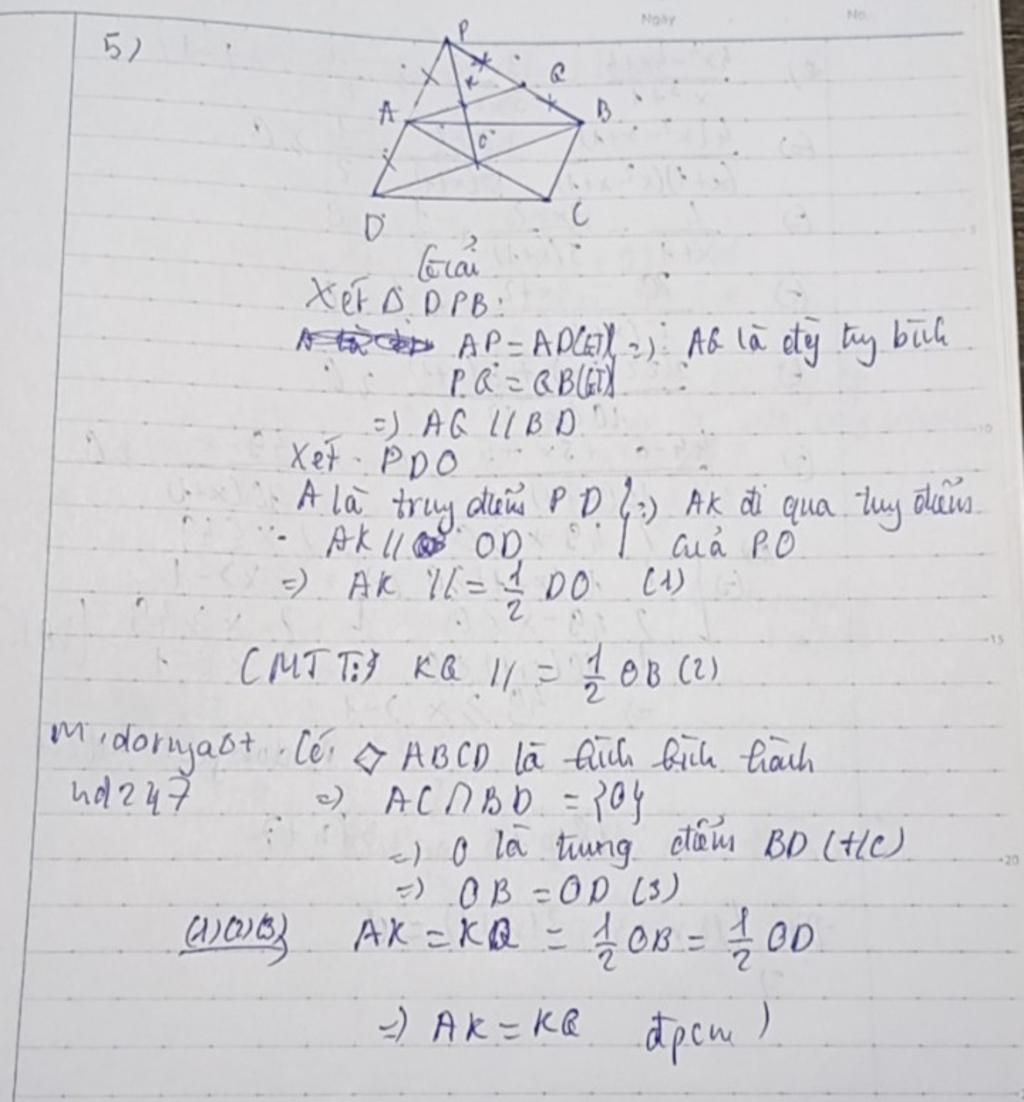 Ngày No.
5)
P
K
Q
A
B
O
D
C
Giải
Xét Δ DPB:
AP = AD(GT) } => AQ là đg trug bình
PQ = QB(GT)
=> AQ // BD
Xét PDO
A là trug điểm PD } => AK đi qua trug điểm
AK // OD của PO
=> AK // = 1/2 DO (1)
CMTT: KQ // = 1/2 OB (2)
Có ABCD là hình bình hành
nd247 => AC ∩ BD = {O}
=> O là trung điểm BD (t/c)
=> OB = OD (3)
(1)(2)(3) AK = KQ = 1/2 OB = 1/2 OD
=> AK = KQ đpcm )